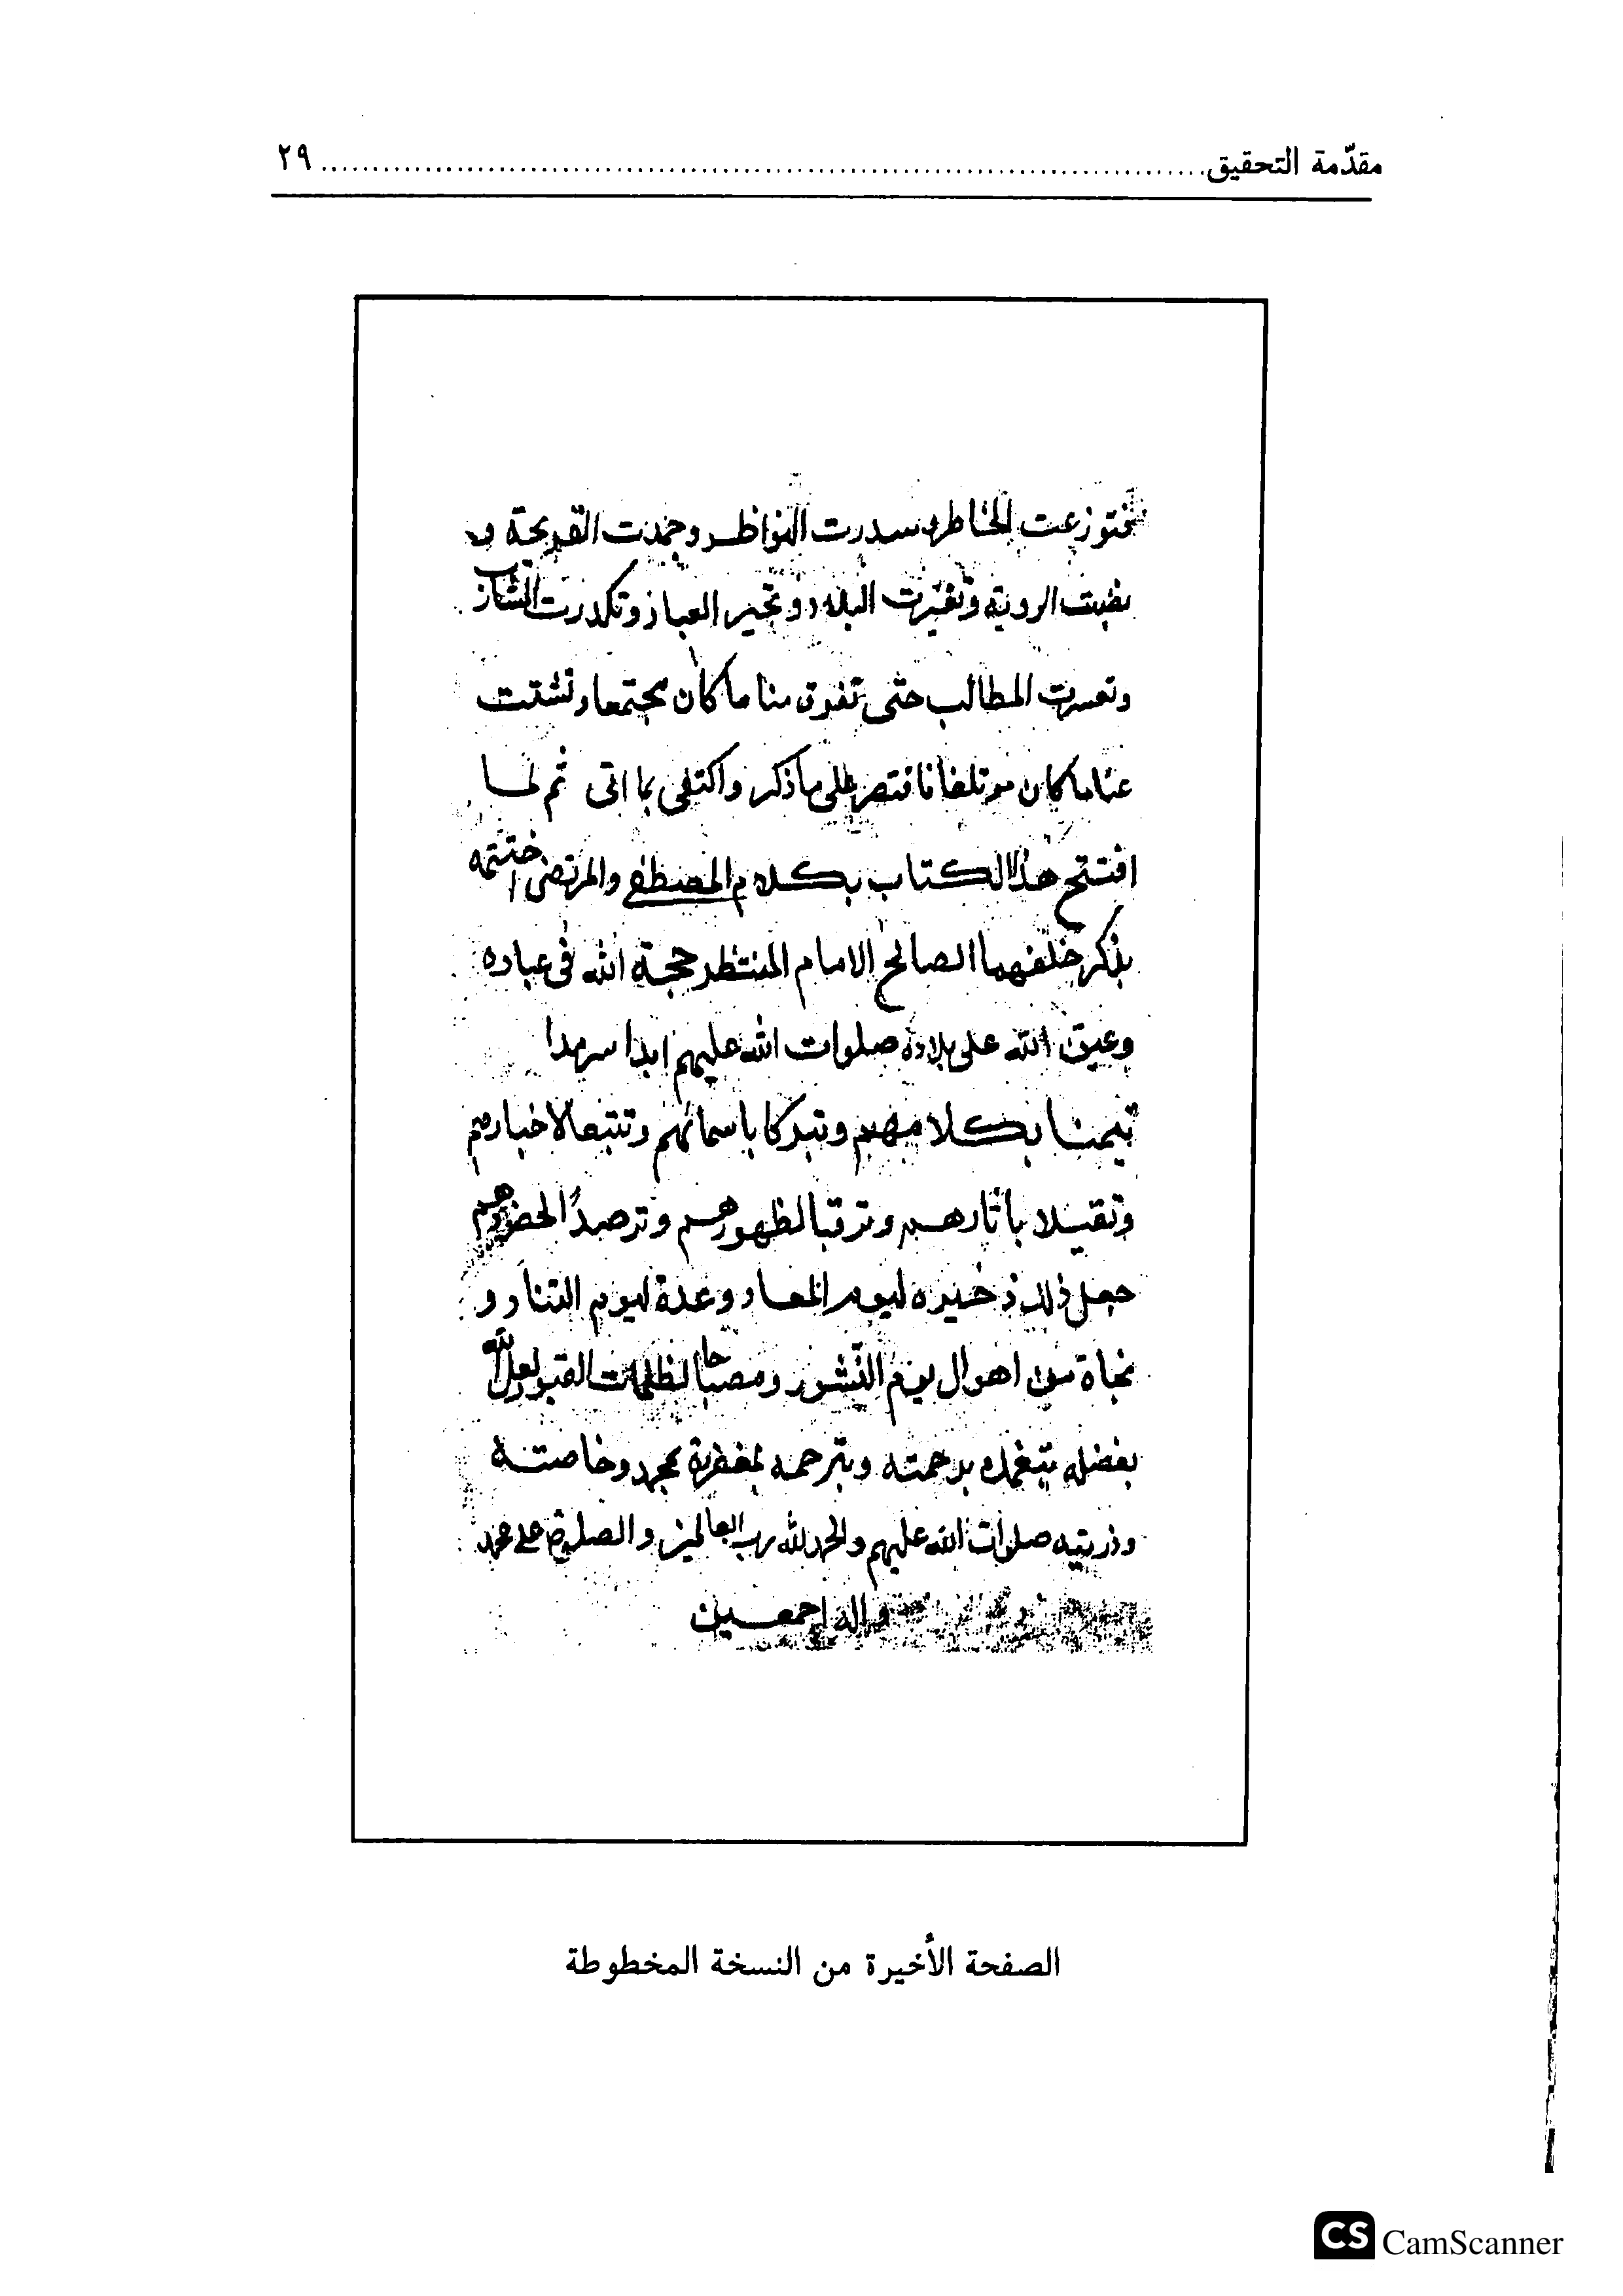 مقدّمة التحقيق ........ ٢٩
فتوزعت الخاطر و سدرت النواظر و جمدت القريحة و
نضبت الروية وتغيرت البلاد و تحير العباد وتكدرت المشارب
وتعسرت المطالب حتى تفرق منا ما كان مجتمعا وتشتت
عنا ما كان موتلفا فاقتصر على ما ذكر واكتفى بما اتى ثم لما
افتتح هذا الكتاب بكلام المصطفى والمرتضى اختتمه
بذكر خلفهما الصالح الامام المنتظر حجة الله فى عباده
وعين الله على بلاده صلوات الله عليهم ابدا سرمدا
تيمنا بكلامهم وتبركا باسمائهم وتتبعا لاخبارهم
وتقيلا باثارهم وترقبا لظهورهم وترصدًا لحضورهم
جعل ذلك ذخيره ليوم المعاد وعدة ليوم التناد و
نجاة من اهوال يوم النشور ومصباحا لظلمات القبور لعل الله
بفضله يتغمده برحمته ويترحمه بمغفرته بمحمد وخاصته
وذريته صلوات الله عليهم والحمد لله رب العالمين والصلوة على محمد
واله اجمعين
الصفحة الأخيرة من النسخة المخطوطة
CS CamScanner